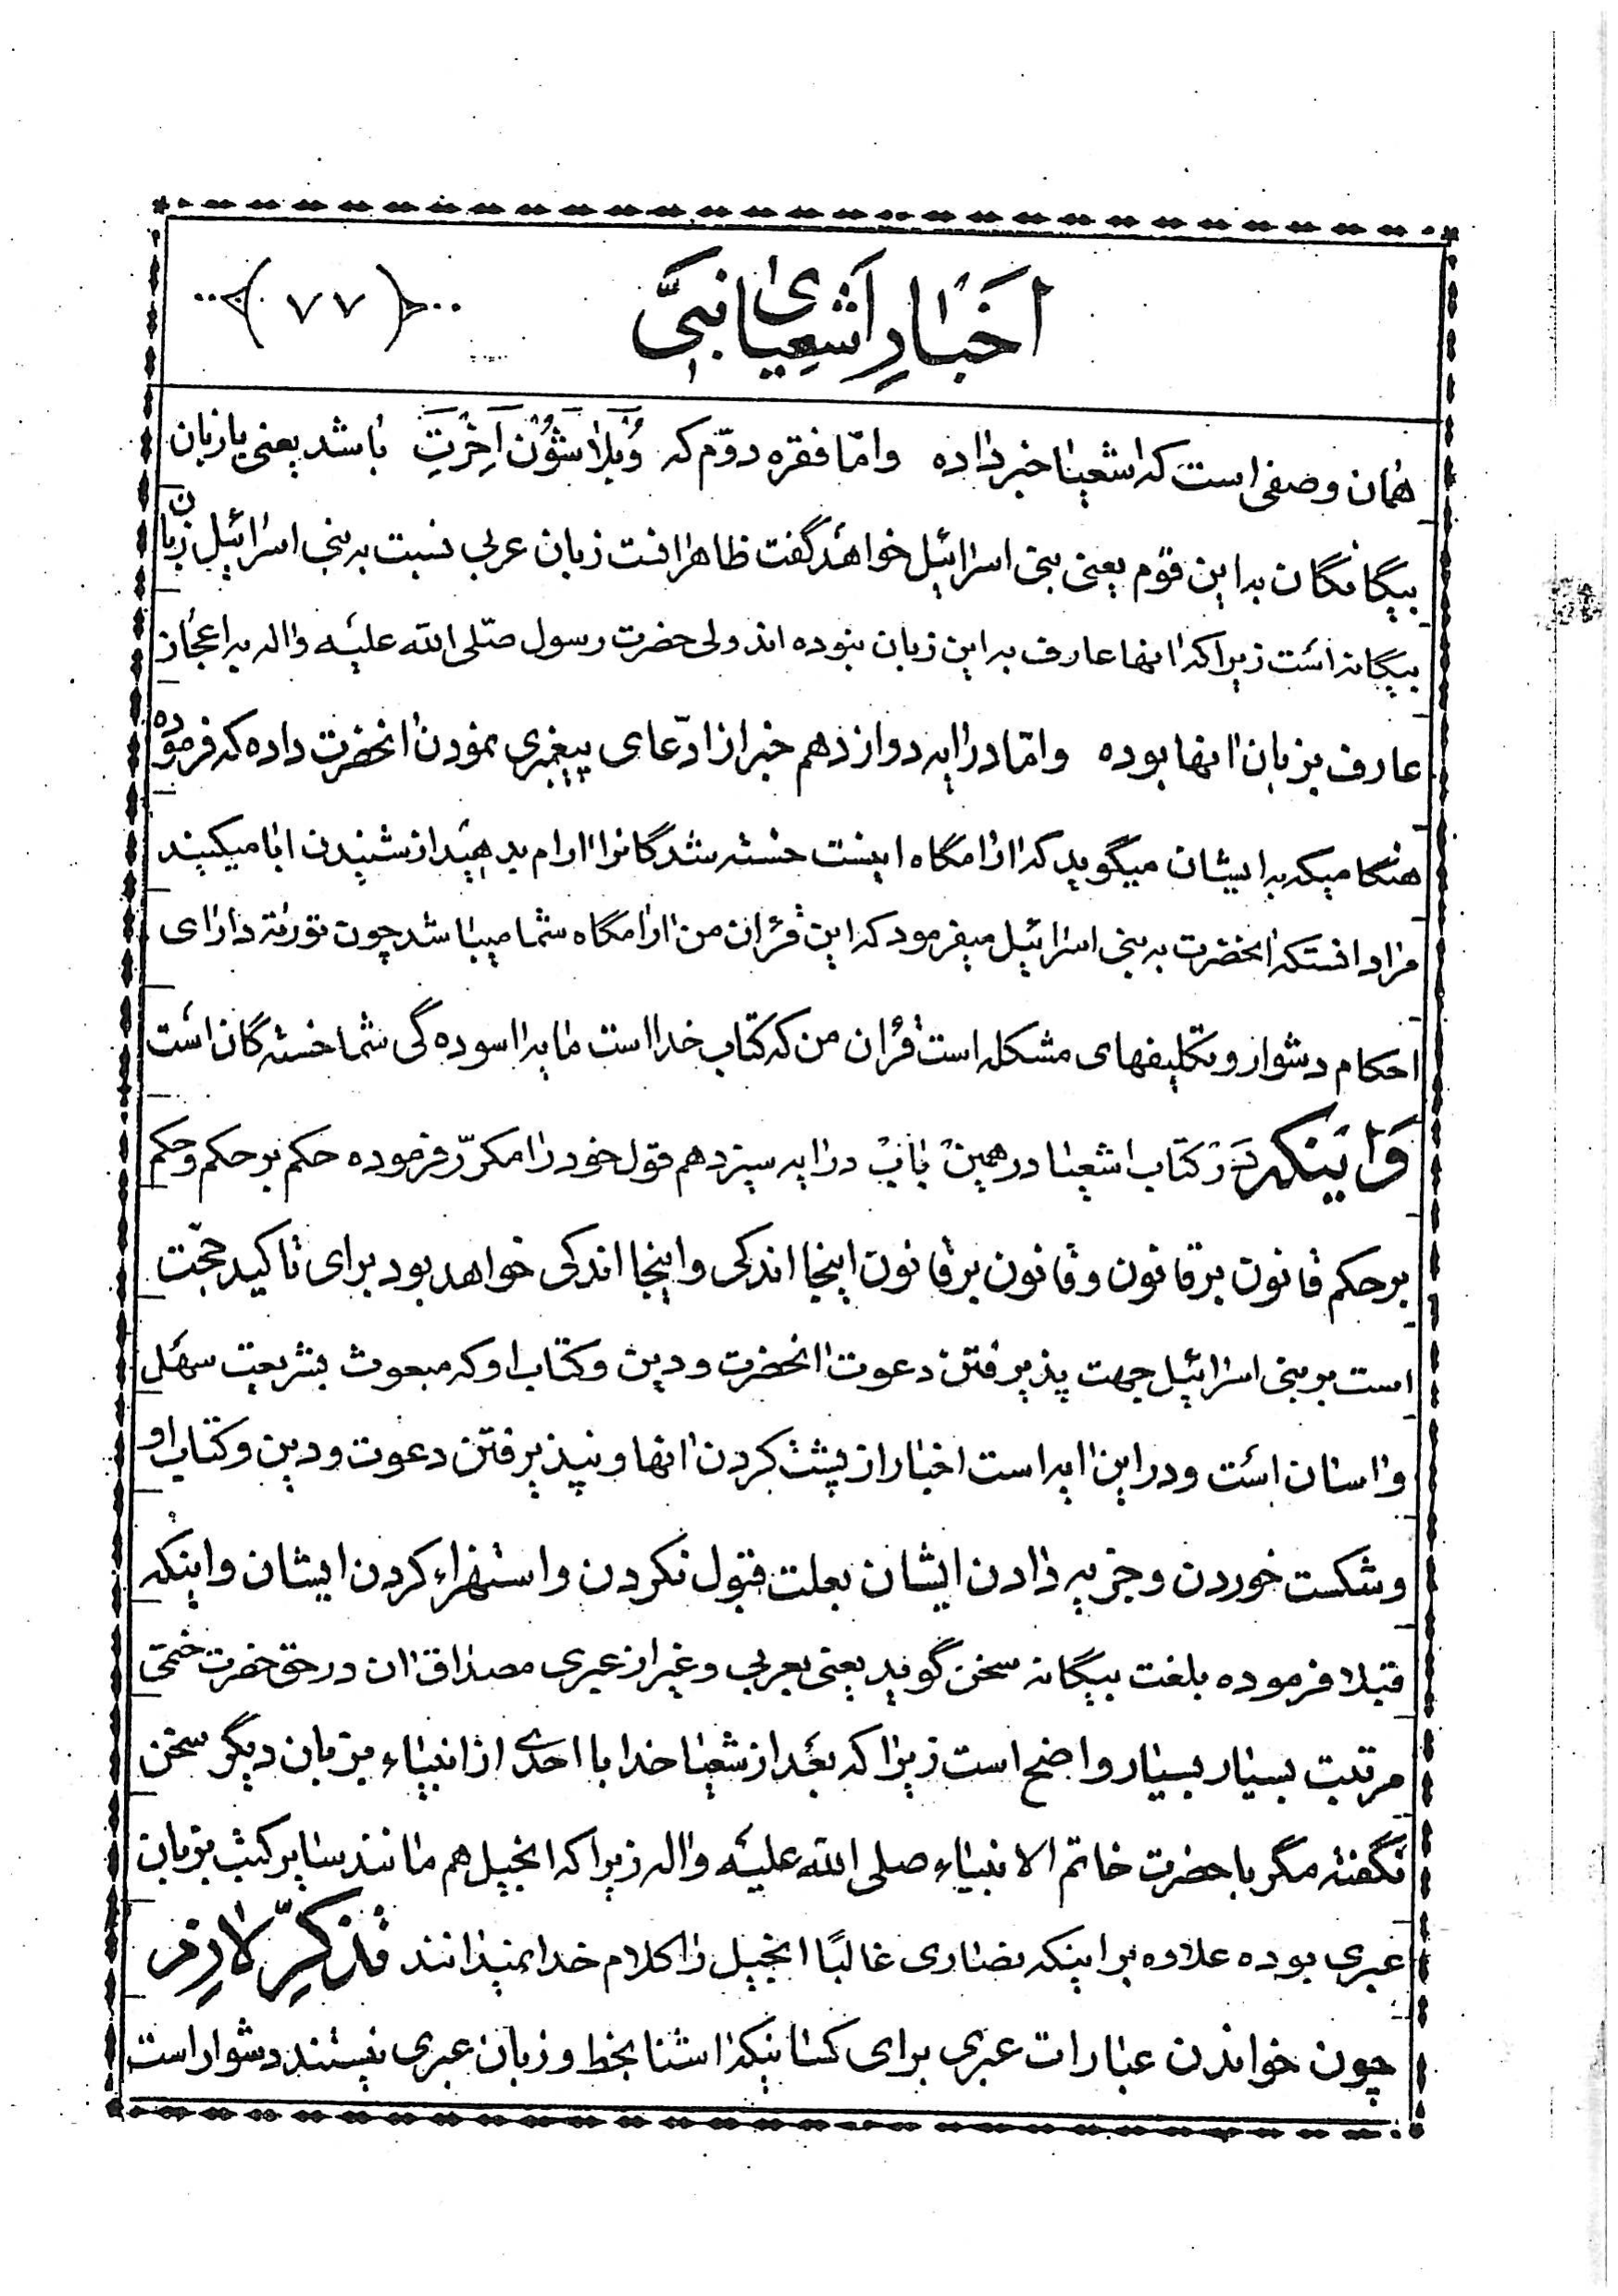 اخبار اشعیای نبی ﴿۷۷﴾
همان وصفی است که اشعیا خبر داده وامّا فقره دوّم که وُبِلاشُوْن اَحِرْتِ باشد یعنی با زبان
بیگانگان به این قوم یعنی بنی اسرائیل خواهد گفت ظاهر انست زبان عربی نسبت به بنی اسرائیل زبان
بیگانه است زیرا که انها عارف به این زبان نبوده اند ولی حضرت رسول صلّی الله علیه واله به اعجاز
عارف بزبان انها بوده وامّا در ایه دوازدهم خبر از ادّعای پیغمبری نمودن انحضرت داده که فرموده
هنگامیکه به ایشان میگوید که ارامگاه اینست خسته شدگانرا ارام بدهید از شنیدن ابا میکنند
مراد انستکه انحضرت به بنی اسرائیل میفرمود که این قران من ارامگاه شما میباشد چون توریة دارای
احکام دشوار و تکلیفهای مشکله است قران من که کتاب خدا است مایه اسوده گی شما خسته گان است
واینکه در کتاب اشعیا در همین باب در ایه سیزدهم قول خود را مکرّر فرموده حکم بر حکم وحکم
بر حکم قانون بر قانون وقانون بر قانون اینجا اندکی واینجا اندکی خواهد بود برای تاکید حجّت
است بر بنی اسرائیل جهت پذیرفتن دعوت انحضرت ودین وکتاب او که مبعوث بشریعت سهل
واسان است ودر این ایه است اخبار از پشت کردن انها ونپذیرفتن دعوت ودین وکتاب او
وشکست خوردن وجزیه دادن ایشان بعلت قبول نکردن واستهزاء کردن ایشان واینکه
قبلا فرموده بلغت بیگانه سخن گوید یعنی بعربی وغیر از عبری مصداق ان در حق حضرت ختمی
مرتبت بسیار بسیار واضح است زیرا که بعد از شعیا خدا با احدی از انبیاء بزبان دیگر سخن
نگفته مگر با حضرت خاتم الانبیاء صلی الله علیه واله زیرا که انجیل هم مانند سایر کتب بزبان
عبری بوده علاوه بر اینکه نصاری غالبًا انجیل را کلام خدا نمیدانند تذکّر لازم
چون خواندن عبارات عبری برای کسانیکه اشنا بخط و زبان عبری نیستند دشوار است